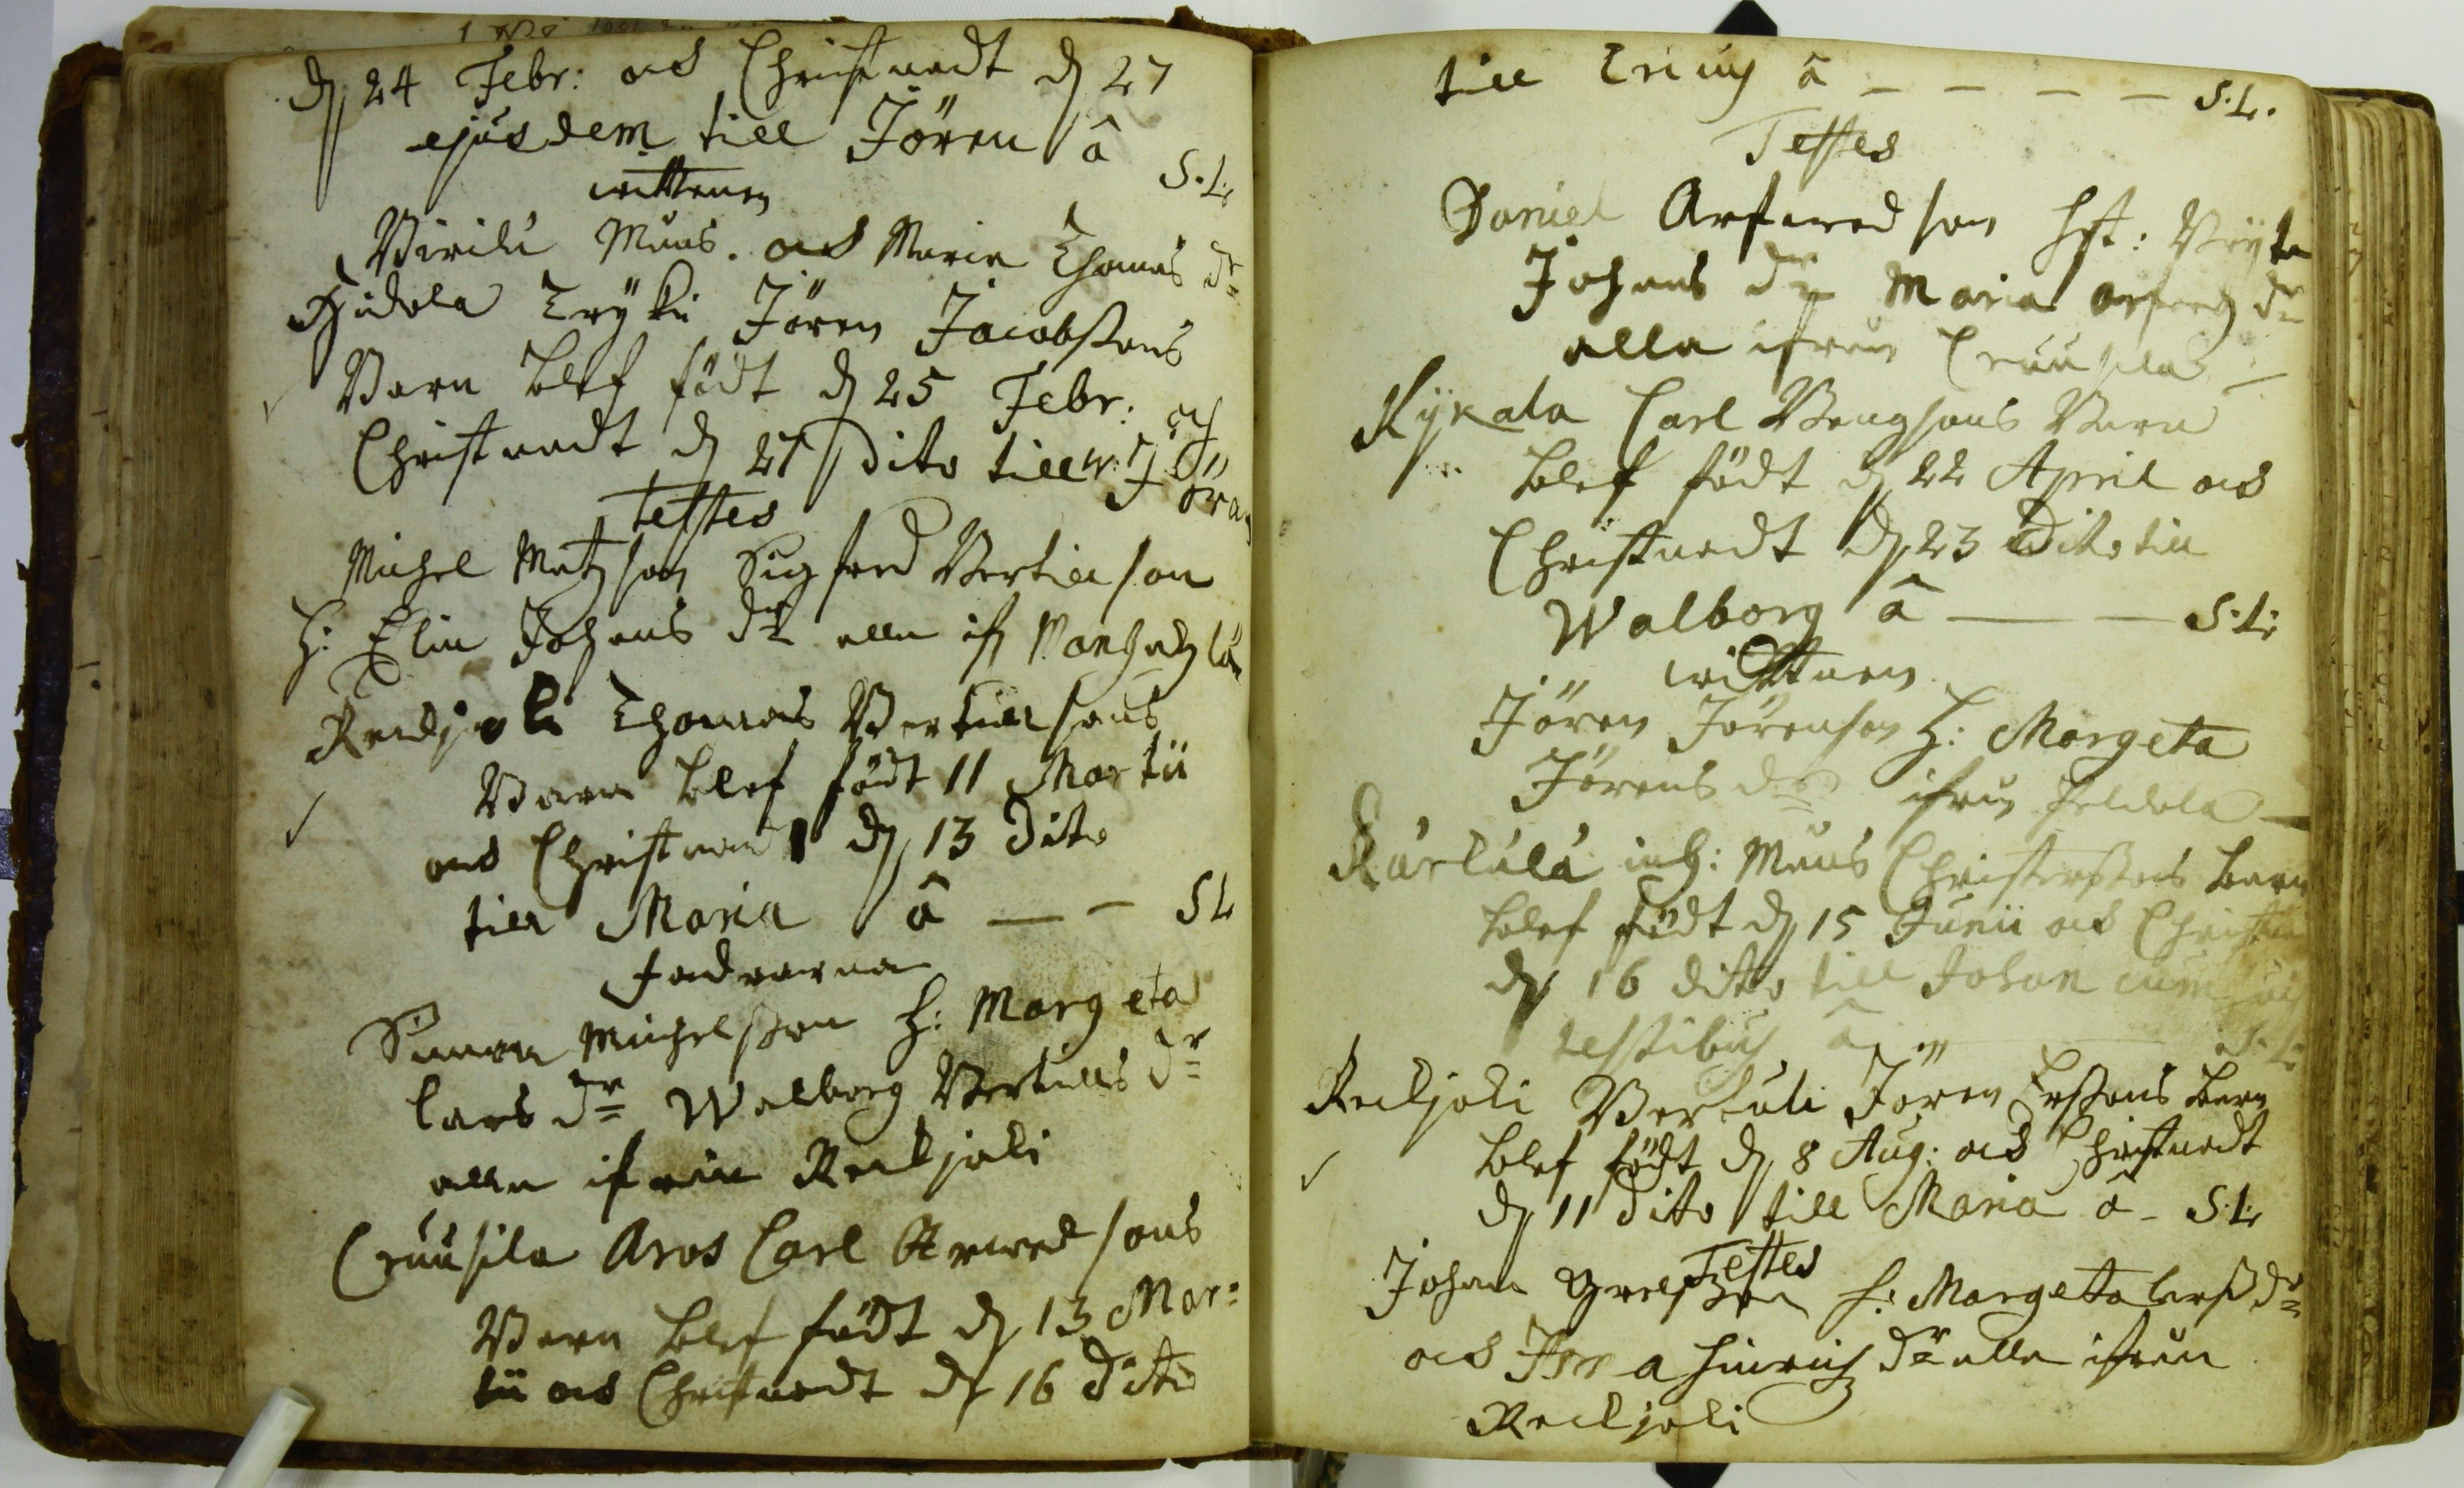 dh 24 Febr: och Christnadt dh 27
ejusdem till Jören â S.L.
wittnen
Wirilä Måns och Maria Thomas dr
Hidola Eryki Jören Jacobssons
Barn blef födt dh 25 Febr: och
Christnadt dh 27 dito till Jöran
testes
Michel Matzson Sigfred Bertilson
H: Elin Johans dr alla ifr
Reckjoki Thomas Bertillsons
Barn blef födt 11 Martii
och Christnadt dh 13 dito
till Maria â — — S L
Faddrarna
Simon Michelsson H: Margeta
Lars dr Walborg Bertills dr
alla ifrån Reckjoki
Cruusila Aros Carl Arwedsons
Barn blef födt dh 13 Mar=
tii och Christnadt dh 16 dito
till Ericus â — — — — S.L.
Testes
Daniel Arfwedson hst: Bryta
Johans dr Maria Arfwedz dr
alla ifrån Cruusila —
Kykala Carl Bengsons Barn
blef födt dh 22 April och
Christnadt dh 23 dito till
Walborg â — — S.L:
wittnen
Jören Jörenson H: Margeta
Jörens dr ifrån
Kärkulä inh: Måns Christerssons barn
blef födt dh 15 Junii och Christnadt
dh 16 dito till Johan cum suis
testibus â — S.L:
Reckjoki Bertuli Jören Erssons barn
blef födt dh 8 Aug: och Christnadt
dh 11 dito till Maria â - S.L:
Testes
Johan Grelsson h: Margeta Larss dr
och Hinrichz dr alla ifrån
Reckjoki